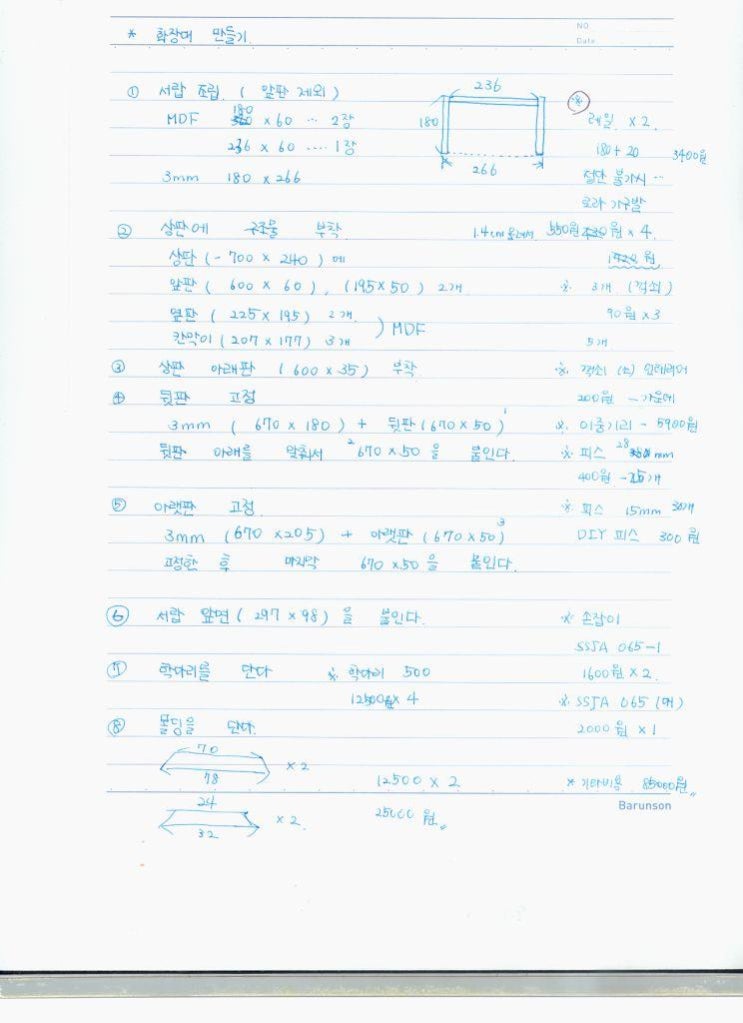 NO.
Date.
* 화장대 만들기.
① 서랍 조립. ( 앞판 제외 )
236
※
180
MDF × 60 … 2장
180
레일. × 2.
236 × 60 …. 1장
180 + 20
3400원
266
3mm 180 × 266
절단 불가시 …
가구발
② 상판에 구조물 부착.
1.4cm 550원 × 4.
상판 ( - 700 × 240 ) 에
원.
앞판 ( 600 × 60 ), (195 × 50 ) 2개
※. 3개 (꺽쇠)
옆판 ( 225 × 195 ) 2개.
90원 × 3
칸막이 ( 207 × 177 ) 3개
) MDF
5개
③ 상판 아래판 ( 600 × 35 ) 부착
※. 꺽쇠 (大) 인테리어
④ 뒷판 고정
200원 - 가운데
3mm ( 670 × 180 ) + 뒷판 (670 × 50 ) 1
※. 이중기리 - 5900원
뒷판 아래를 맞춰서 2 670 × 50 을 붙인다.
※ 피스 28 mm
400원 - 25개
⑤ 아랫판 고정.
※ 피스 15mm 30개
3mm (670 × 205) + 아랫판 (670 × 50) 3
DIY 피스 300원
고정한 후 마지막 670 × 50 을 붙인다.
⑥ 서랍 앞면 ( 297 × 98 ) 을 붙인다.
※ 손잡이
SSJA 065-1
⑦ 학다리를 단다
※ 학다리 500
1600원 × 2.
12500원 × 4
※. SSJA 065 (대)
⑧ 몰딩을 단다.
2000원 × 1
70
× 2
78
12500 × 2
* 기타비용 85000원〃
Barunson
24
× 2.
25000원〃
32